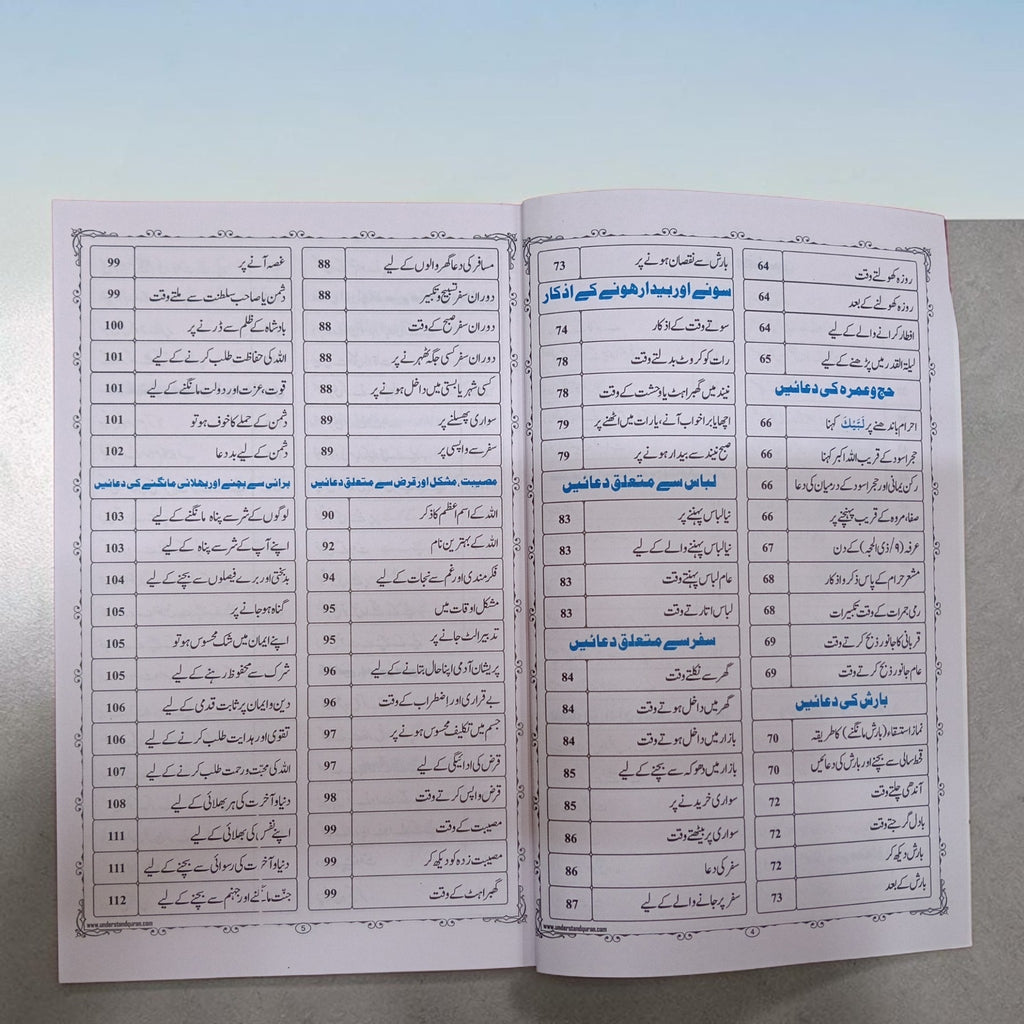 روزہ کھولتے وقت 64
روزہ کھولنے کے بعد 64
افطار کرانے والے کے لیے 64
لیلۃ القدر میں پڑھنے کے لیے 65
حج وعمرہ کی دعائیں
احرام باندھنے پر لَبَّیْکَ کہنا 66
حجر اسود کے قریب اللہ اکبر کہنا 66
رکن یمانی اور حجر اسود کے درمیان کی دعا 66
صفا، مروہ کے قریب پہنچنے پر 66
عرفہ (۹/ذی الحجہ) کے دن 67
مشعر حرام کے پاس ذکر و اذکار 68
رمی جمرات کے وقت تکبیرات 68
قربانی کا جانور ذبح کرتے وقت 69
عام جانور ذبح کرتے وقت 69
بارش کی دعائیں
نماز استسقاء (بارش مانگنے) کا طریقہ 70
قحط سالی سے بچنے اور بارش کی دعائیں 70
آندھی چلتے وقت 72
بادل گرجتے وقت 72
بارش دیکھ کر 72
بارش کے بعد 73
بارش سے نقصان ہونے پر 73
سونے اور بیدار ہونے کے اذکار
سوتے وقت کے اذکار 74
رات کو کروٹ بدلتے وقت 78
نیند میں گھبراہٹ یا وحشت کے وقت 78
اچھا یا برا خواب آنے، یا رات میں اٹھنے پر 79
صبح نیند سے بیدار ہونے پر 79
لباس سے متعلق دعائیں
نیا لباس پہننے پر 83
نیا لباس پہننے والے کے لیے 83
عام لباس پہنتے وقت 83
لباس اتارتے وقت 83
سفر سے متعلق دعائیں
گھر سے نکلتے وقت 84
گھر میں داخل ہوتے وقت 84
بازار میں داخل ہوتے وقت 84
بازار میں دھوکہ سے بچنے کے لیے 85
سواری خریدنے پر 85
سواری پر بیٹھتے وقت 86
سفر کی دعا 86
سفر پر جانے والے کے لیے 87
www.understandquran.com
4
مسافر کی دعا گھر والوں کے لیے 88
دوران سفر تسبیح و تکبیر 88
دوران سفر صبح کے وقت 88
دوران سفر کسی جگہ ٹھہرنے پر 88
کسی شہر یا بستی میں داخل ہونے پر 88
سواری پھسلنے پر 89
سفر سے واپسی پر 89
مصیبت، مشکل اور قرض سے متعلق دعائیں
اللہ کے اسم اعظم کا ذکر 90
اللہ کے بہترین نام 92
فکر مندی اور غم سے نجات کے لیے 94
مشکل اوقات میں 95
تدبیر الٹ جانے پر 95
پریشان آدمی اپنا حال بتانے کے لیے 96
بے قراری اور اضطراب کے وقت 96
جسم میں تکلیف محسوس ہونے پر 97
قرض کی ادائیگی کے لیے 97
قرض واپس کرتے وقت 98
مصیبت کے وقت 99
مصیبت زدہ کو دیکھ کر 99
گھبراہٹ کے وقت 99
غصہ آنے پر 99
دشمن یا صاحب سلطنت سے ملتے وقت 99
بادشاہ کے ظلم سے ڈرنے پر 100
اللہ کی حفاظت طلب کرنے کے لیے 101
قوت، عزت اور دولت مانگنے کے لیے 101
دشمن کے حملے کا خوف ہو تو 101
دشمن کے لیے بد دعا 102
برائی سے بچنے اور بھلائی مانگنے کی دعائیں
لوگوں کے شر سے پناہ مانگنے کے لیے 103
اپنے آپ کے شر سے پناہ کے لیے 103
بدبختی اور برے فیصلوں سے بچنے کے لیے 104
گناہ ہو جانے پر 105
اپنے ایمان میں شک محسوس ہو تو 105
شرک سے محفوظ رہنے کے لیے 105
دین و ایمان پر ثابت قدمی کے لیے 106
تقویٰ اور ہدایت طلب کرنے کے لیے 106
اللہ کی محبّت و رحمت طلب کرنے کے لیے 107
دنیا و آخرت کی ہر بھلائی کے لیے 108
اپنے نفس کی بھلائی کے لیے 111
دنیا و آخرت کی رسوائی سے بچنے کے لیے 111
جنّت مانگنے اور جہنم سے بچنے کے لیے 112
www.understandquran.com
5